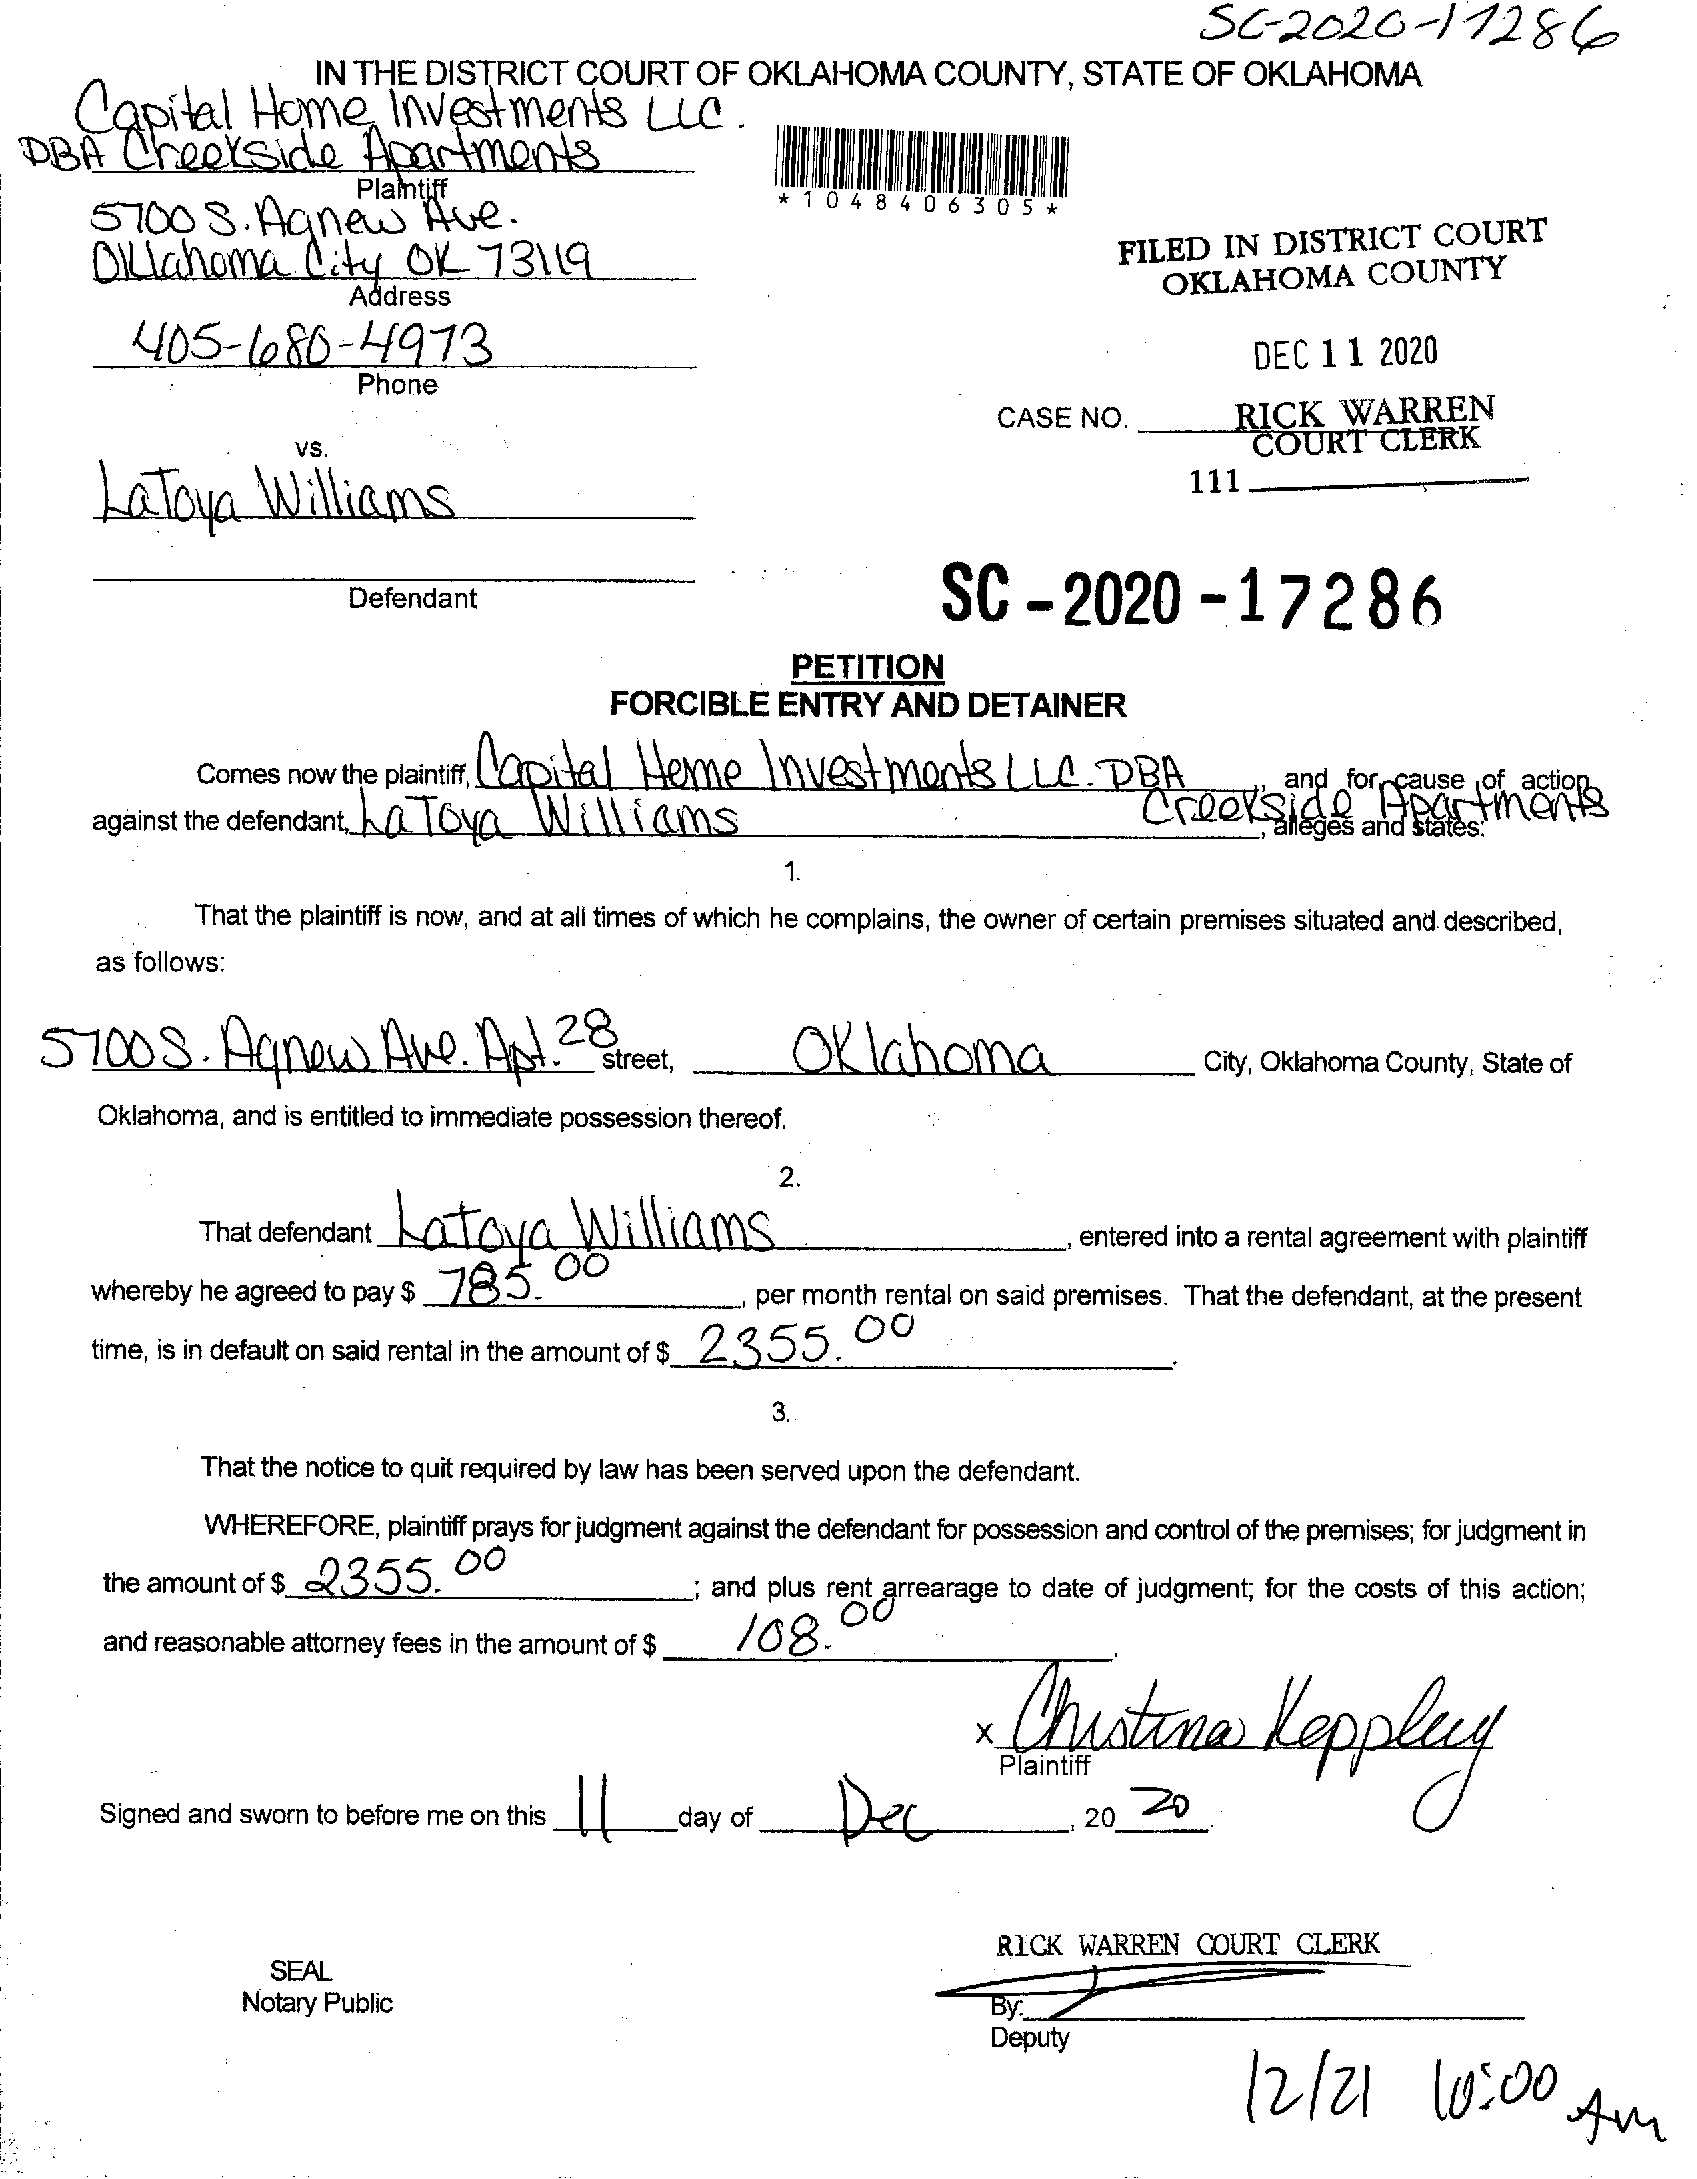 SC-2020-17286
IN THE DISTRICT COURT OF OKLAHOMA COUNTY, STATE OF OKLAHOMA
Capital Home Investments LLC.
DBA Creekside Apartments
Plaintiff
*1048406305*
5700 S. Agnew Ave.
Oklahoma City OK 73119
Address
FILED IN DISTRICT COURT
OKLAHOMA COUNTY
405-680-4973
Phone
DEC 11 2020
CASE NO.
RICK WARREN
COURT CLERK
vs.
111
LaToya Williams
Defendant
SC-2020-17286
PETITION
FORCIBLE ENTRY AND DETAINER
Comes now the plaintiff, Capital Home Investments LLC. DBA Creekside Apartments, and for cause of action
against the defendant, LaToya Williams, alleges and states:
1.
That the plaintiff is now, and at all times of which he complains, the owner of certain premises situated and described,
as follows:
5700 S. Agnew Ave. Apt. 28 street, Oklahoma City, Oklahoma County, State of
Oklahoma, and is entitled to immediate possession thereof.
2.
That defendant Latoya Williams, entered into a rental agreement with plaintiff
whereby he agreed to pay $ 785.00, per month rental on said premises. That the defendant, at the present
time, is in default on said rental in the amount of $ 2355.00.
3.
That the notice to quit required by law has been served upon the defendant.
WHEREFORE, plaintiff prays for judgment against the defendant for possession and control of the premises; for judgment in
the amount of $ 2355.00; and plus rent arrearage to date of judgment; for the costs of this action;
and reasonable attorney fees in the amount of $ 108.00.
x Christina Keppley
Plaintiff
Signed and sworn to before me on this 11 day of Dec, 20 20.
RICK WARREN COURT CLERK
SEAL
Notary Public
By:
Deputy
12/21 10:00 AM